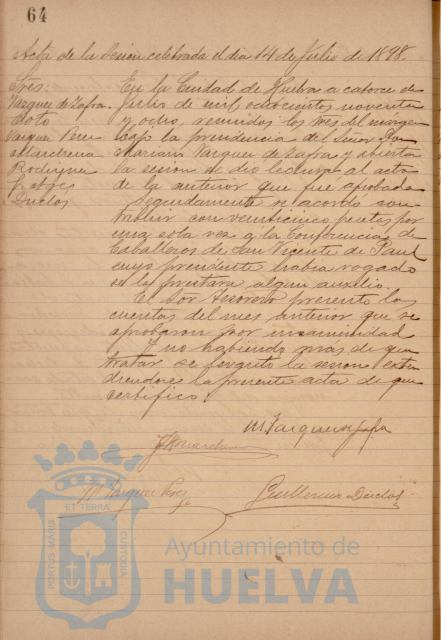 64
Acta de la Sesion celebrada el dia 14 de Julio de 1898.
Sres:
Vazquez de Zafra.
Soto
Vazquez Perez
Marchena
Rodriguez
Duclos
En la Ciudad de Huelva a catorce de
Julio de mil ochocientos noventa
y ocho, reunidos los Sres del margen
bajo la presidencia del Señor Don
Mariano Vazquez de Zafra y abierta
la sesion se dio lectura al acta
de la anterior que fue aprobada
Seguidamente se acordó con
tribuir con veinticinco pesetas por
una sola vez a la Conferencia de
Caballeros de San Vicente de Paul
cuyo presidente habia rogado
se le prestara algun auxilio.
El Sor Tesorero presentó las
cuentas del mes anterior que se
aprobaron por unanimidad
Y no habiendo mas de que
tratar se levantó la sesion exten
diendose la presente acta de que
certifico.
M Vazquez de Zafra
Marchena
M. Vazquez Perez
Guillermo Duclos
PORTUS MARIS
ET TERRÆ
CUSTODIA
Ayuntamiento de
HUELVA